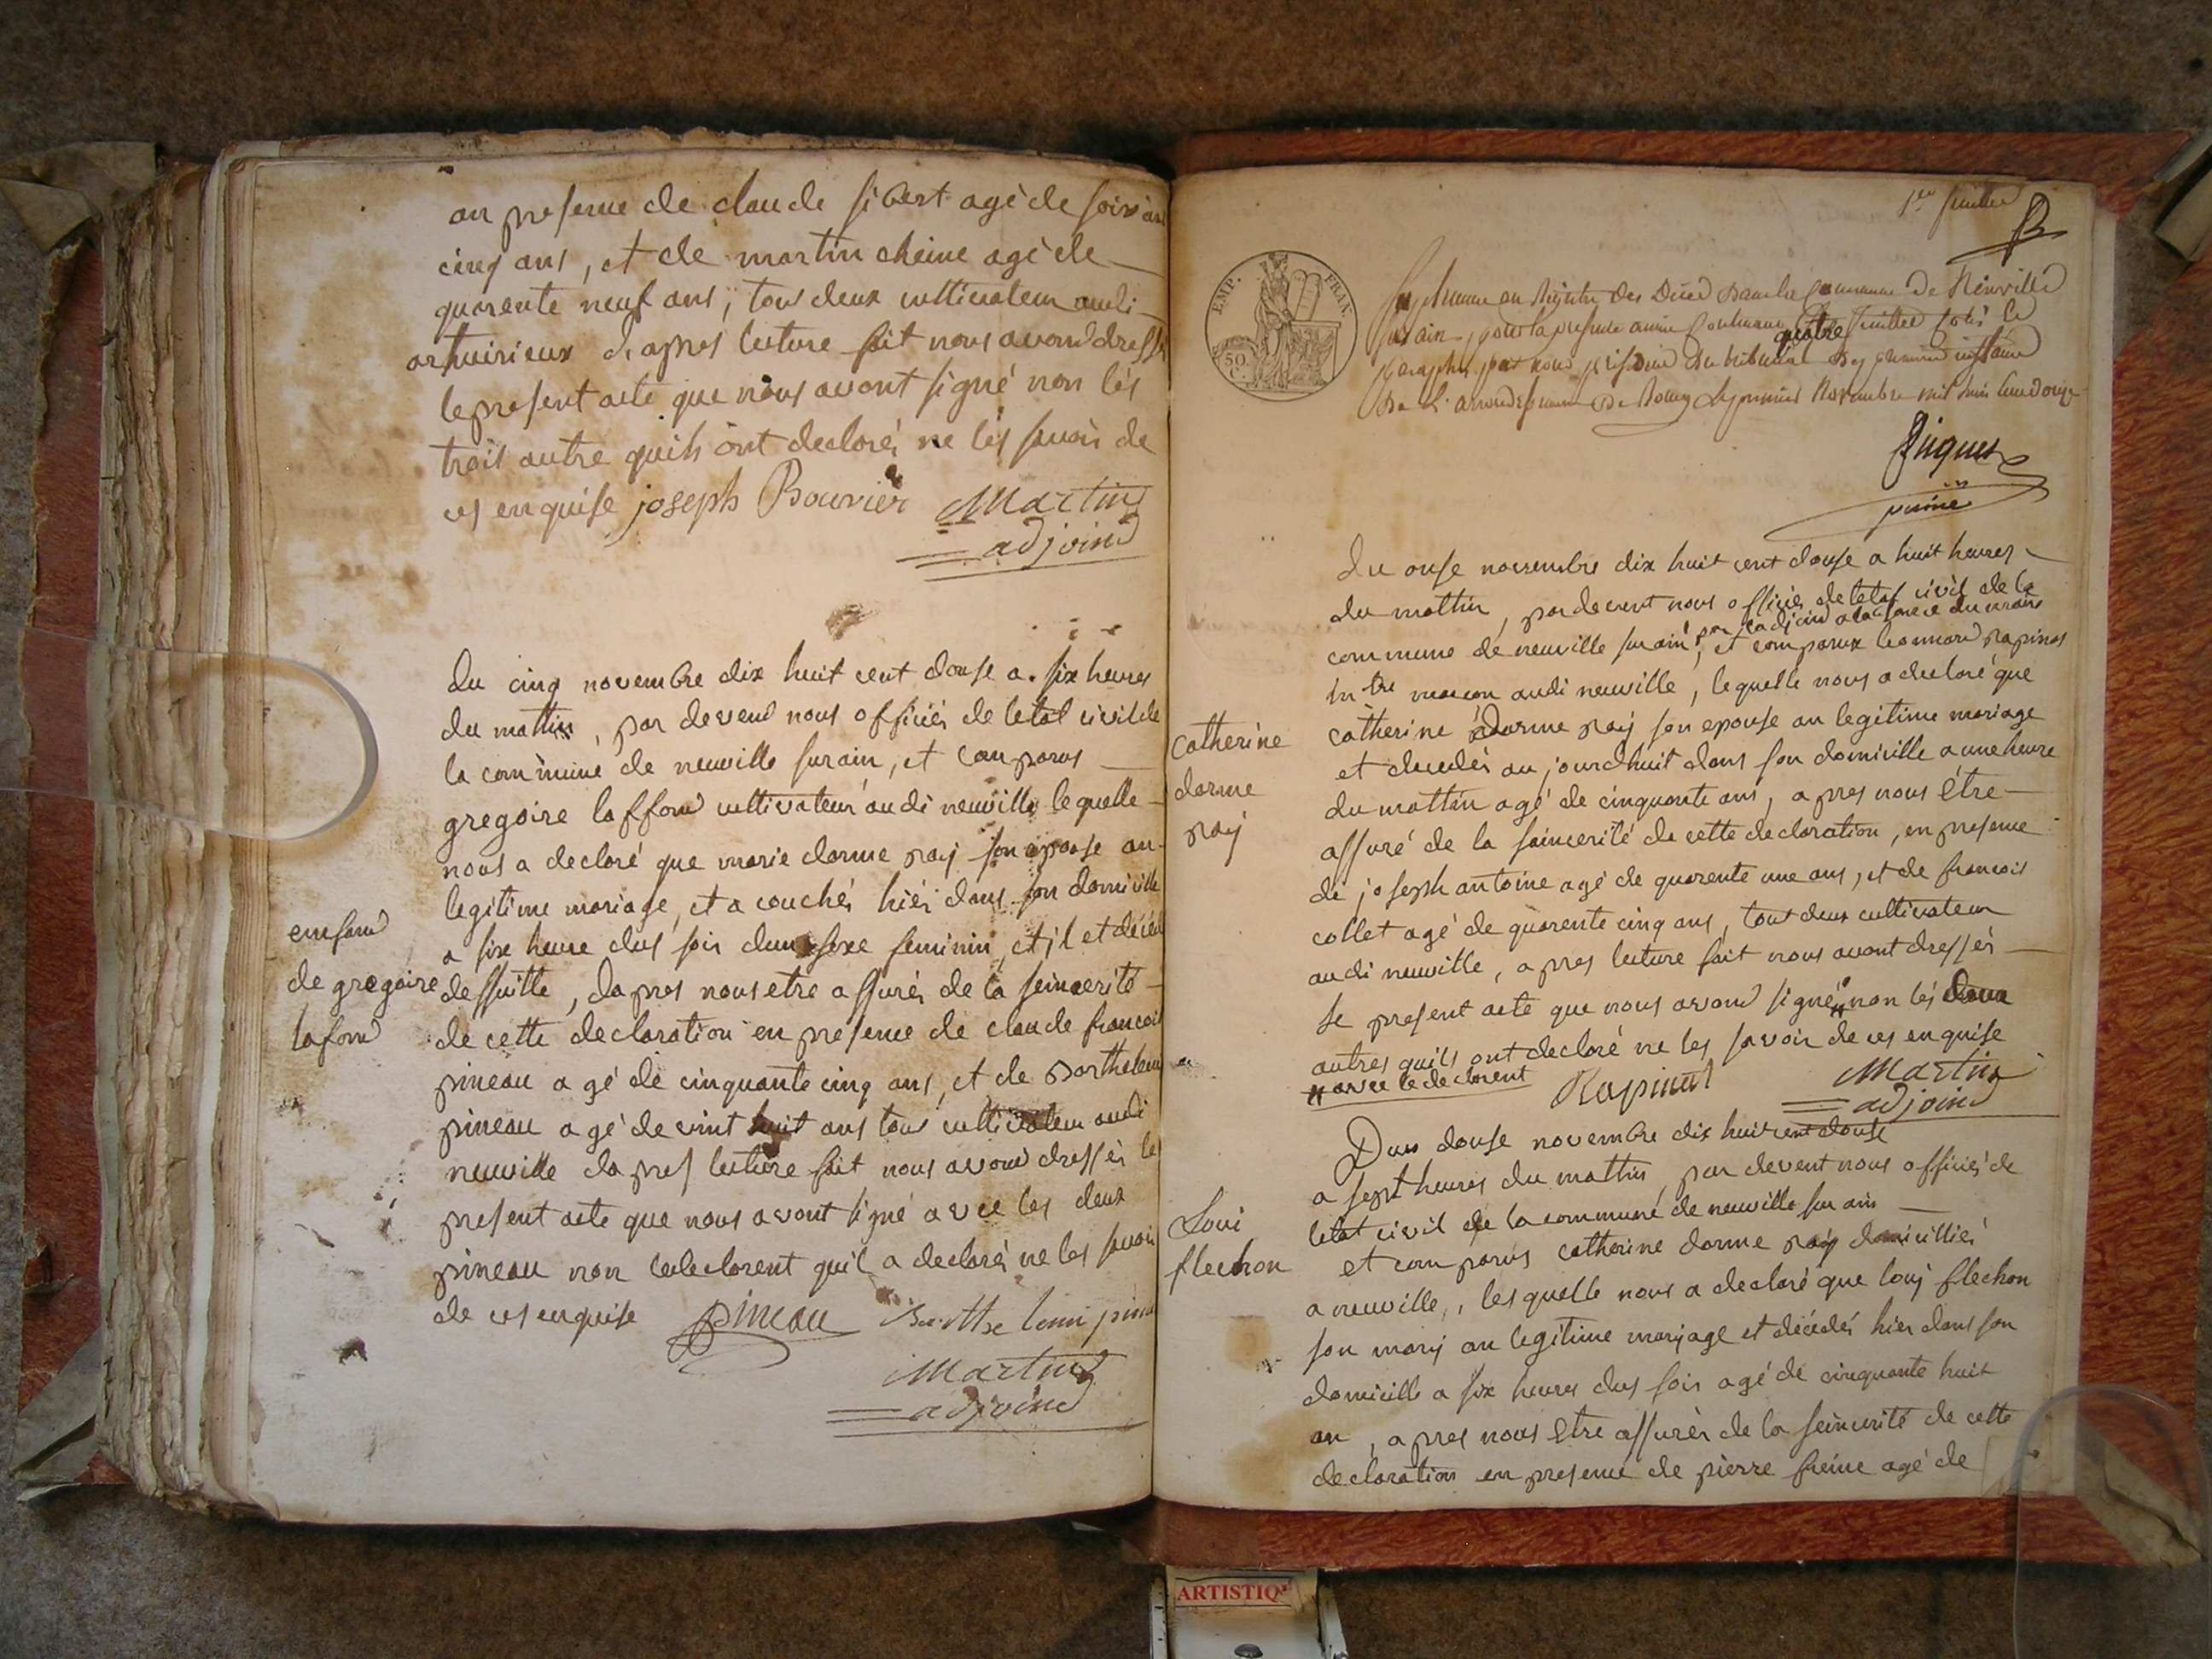 an presence de claude sibert agè de soixante
cinq ans, et de martin cheine agè de
quarente neuf ans, tous deux cultivateur audi
d'apres lecture fait nous avond dressé
le present acte que nous avont signé non lés
trois autre quils ont declorés ne lés savoir de
ces enquise joseph Bouvier Martin
adjoind
du cinq novembre dix huit cent douse a six heures
du mattin, par devend nous officiér de letat civil de
la commune de neuville surain, et comparus
gregoire laffond cultivateur audi neuville lequelle
nous a decloré que marie dorme ray son epouse an
legitime mariage, et a couchés hiér dans son domiville
a six heure dus soir dun sexe feminin, et il et décédé
enfand
de gregoire
lafond
de suitte, dapres nous etre assurér de la seincerité
de cette decloration en presence de claude francois
pineau a gé de cinquante cinq ans, et de barthelemi
pineau a gé de vint huit ans tous cultivateur audi
neuville dapres lecture fait nous avond dressér le
present acte que nous avont signé avec les deux
pineau non le declorent quil a declorés ne les savoir
de ces enquise pineau Barthelemi pineau
Martin
adjoind
1er feuillet
EMP. FRAN.
50 C.
de neuville
surain, pour la presente année contenant quatre feuillets cotés et
paraphés par nous president du tribunal de premiere instance
de l'arrondissement de Bourg le premier Novembre mil huit cent douze
du onse novembre dix huit cent douse a huit heures
du mattin, par devent nous officiér de letat civil de la
commune de neuville surain, par ladjoind a labsance du maire, et comparux leonnard rapinat
macon audi neuville, lequelle nous a decloré que
catherine dorme ray son epouse an legitime mariage
et decedés aujourdhuit dans son domiville a une heure
catherine
dorme
ray
du mattin agé de cinquante ans, apres nous être
assuré de la saincerité de cette decloration, en presence
de joseph antoine agé de quarente une ans, et de francois
collet agé de quarente cinq ans, tout deux cultivateur
audi neuville, apres lecture fait nous avont dressér
le present acte que nous avond signé non lés deux
autres quils ont decloré ne les savoir de ces enquise
avec le declorent Rapinat Martin
adjoind
Dus douse novembre dix huit cent douse
a sept heures du mattin, par devent nous officiér de
letat civil de la commune de neuville sur ain
et comparus catherine dorme ray domicilliér
Loui
flechon
a neuville, lesquelle nous a decloré que louj flechon
son marij an legitime marjage et décédés hier dans son
domicille a six heures dus soir agé de cinquante huit
an, apres nous être assurér de la seincerité de cette
decloration en presence de pierre freine agé de
ARTISTIQ